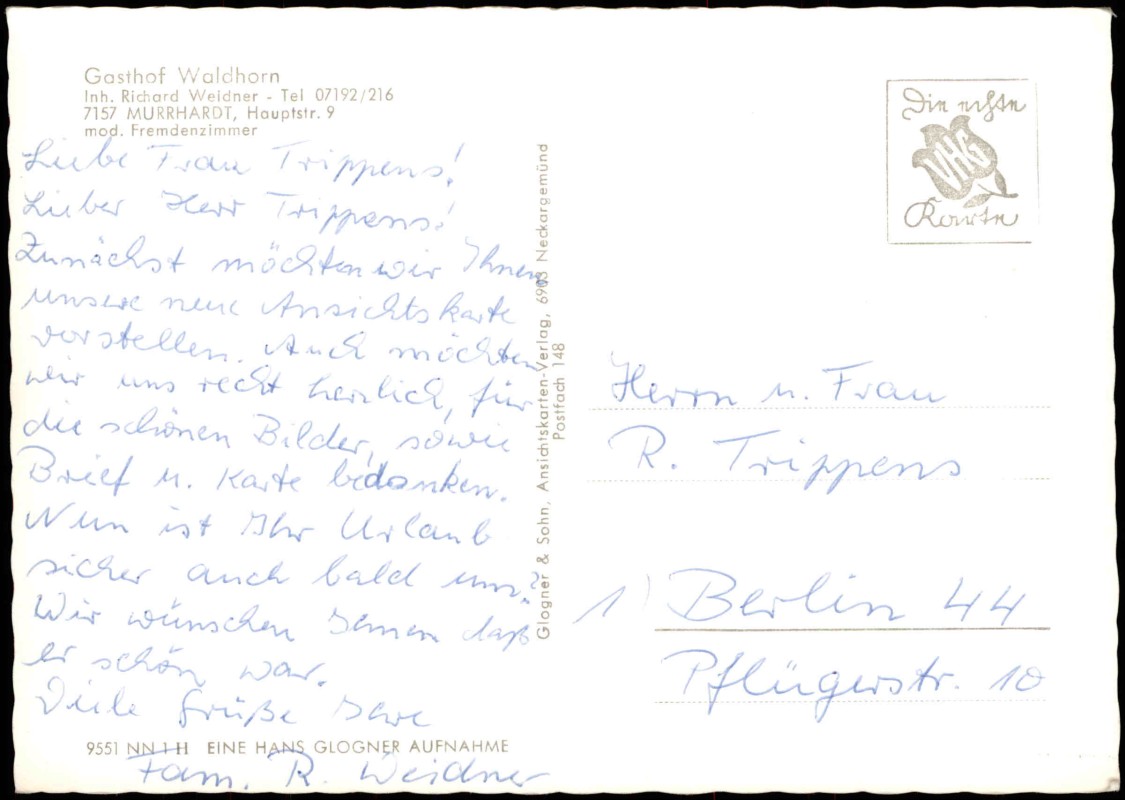 Gasthof Waldhorn
Inh. Richard Weidner - Tel 07192/216
7157 MURRHARDT, Hauptstr. 9
mod. Fremdenzimmer
Liebe Frau Trippens!
Lieber Herr Trippens!
Zunächst möchten wir Ihnen
unsere neue Ansichtskarte
vorstellen. Auch möchten
wir uns recht herzlich, für
die schönen Bilder, sowie
Brief u. Karte bedanken.
Nun ist Ihr Urlaub
sicher auch bald um?
Wir wünschen Ihnen daß
er schön war.
Viele Grüße Ihre
9551 NN 1 H EINE HANS GLOGNER AUFNAHME
Fam. R. Weidner
Glogner & Sohn, Ansichtskarten-Verlag, 6903 Neckargemünd
Postfach 148
Die echte
VHG
Karte
Herrn u. Frau
R. Trippens
1) Berlin 44
Pflügerstr. 10